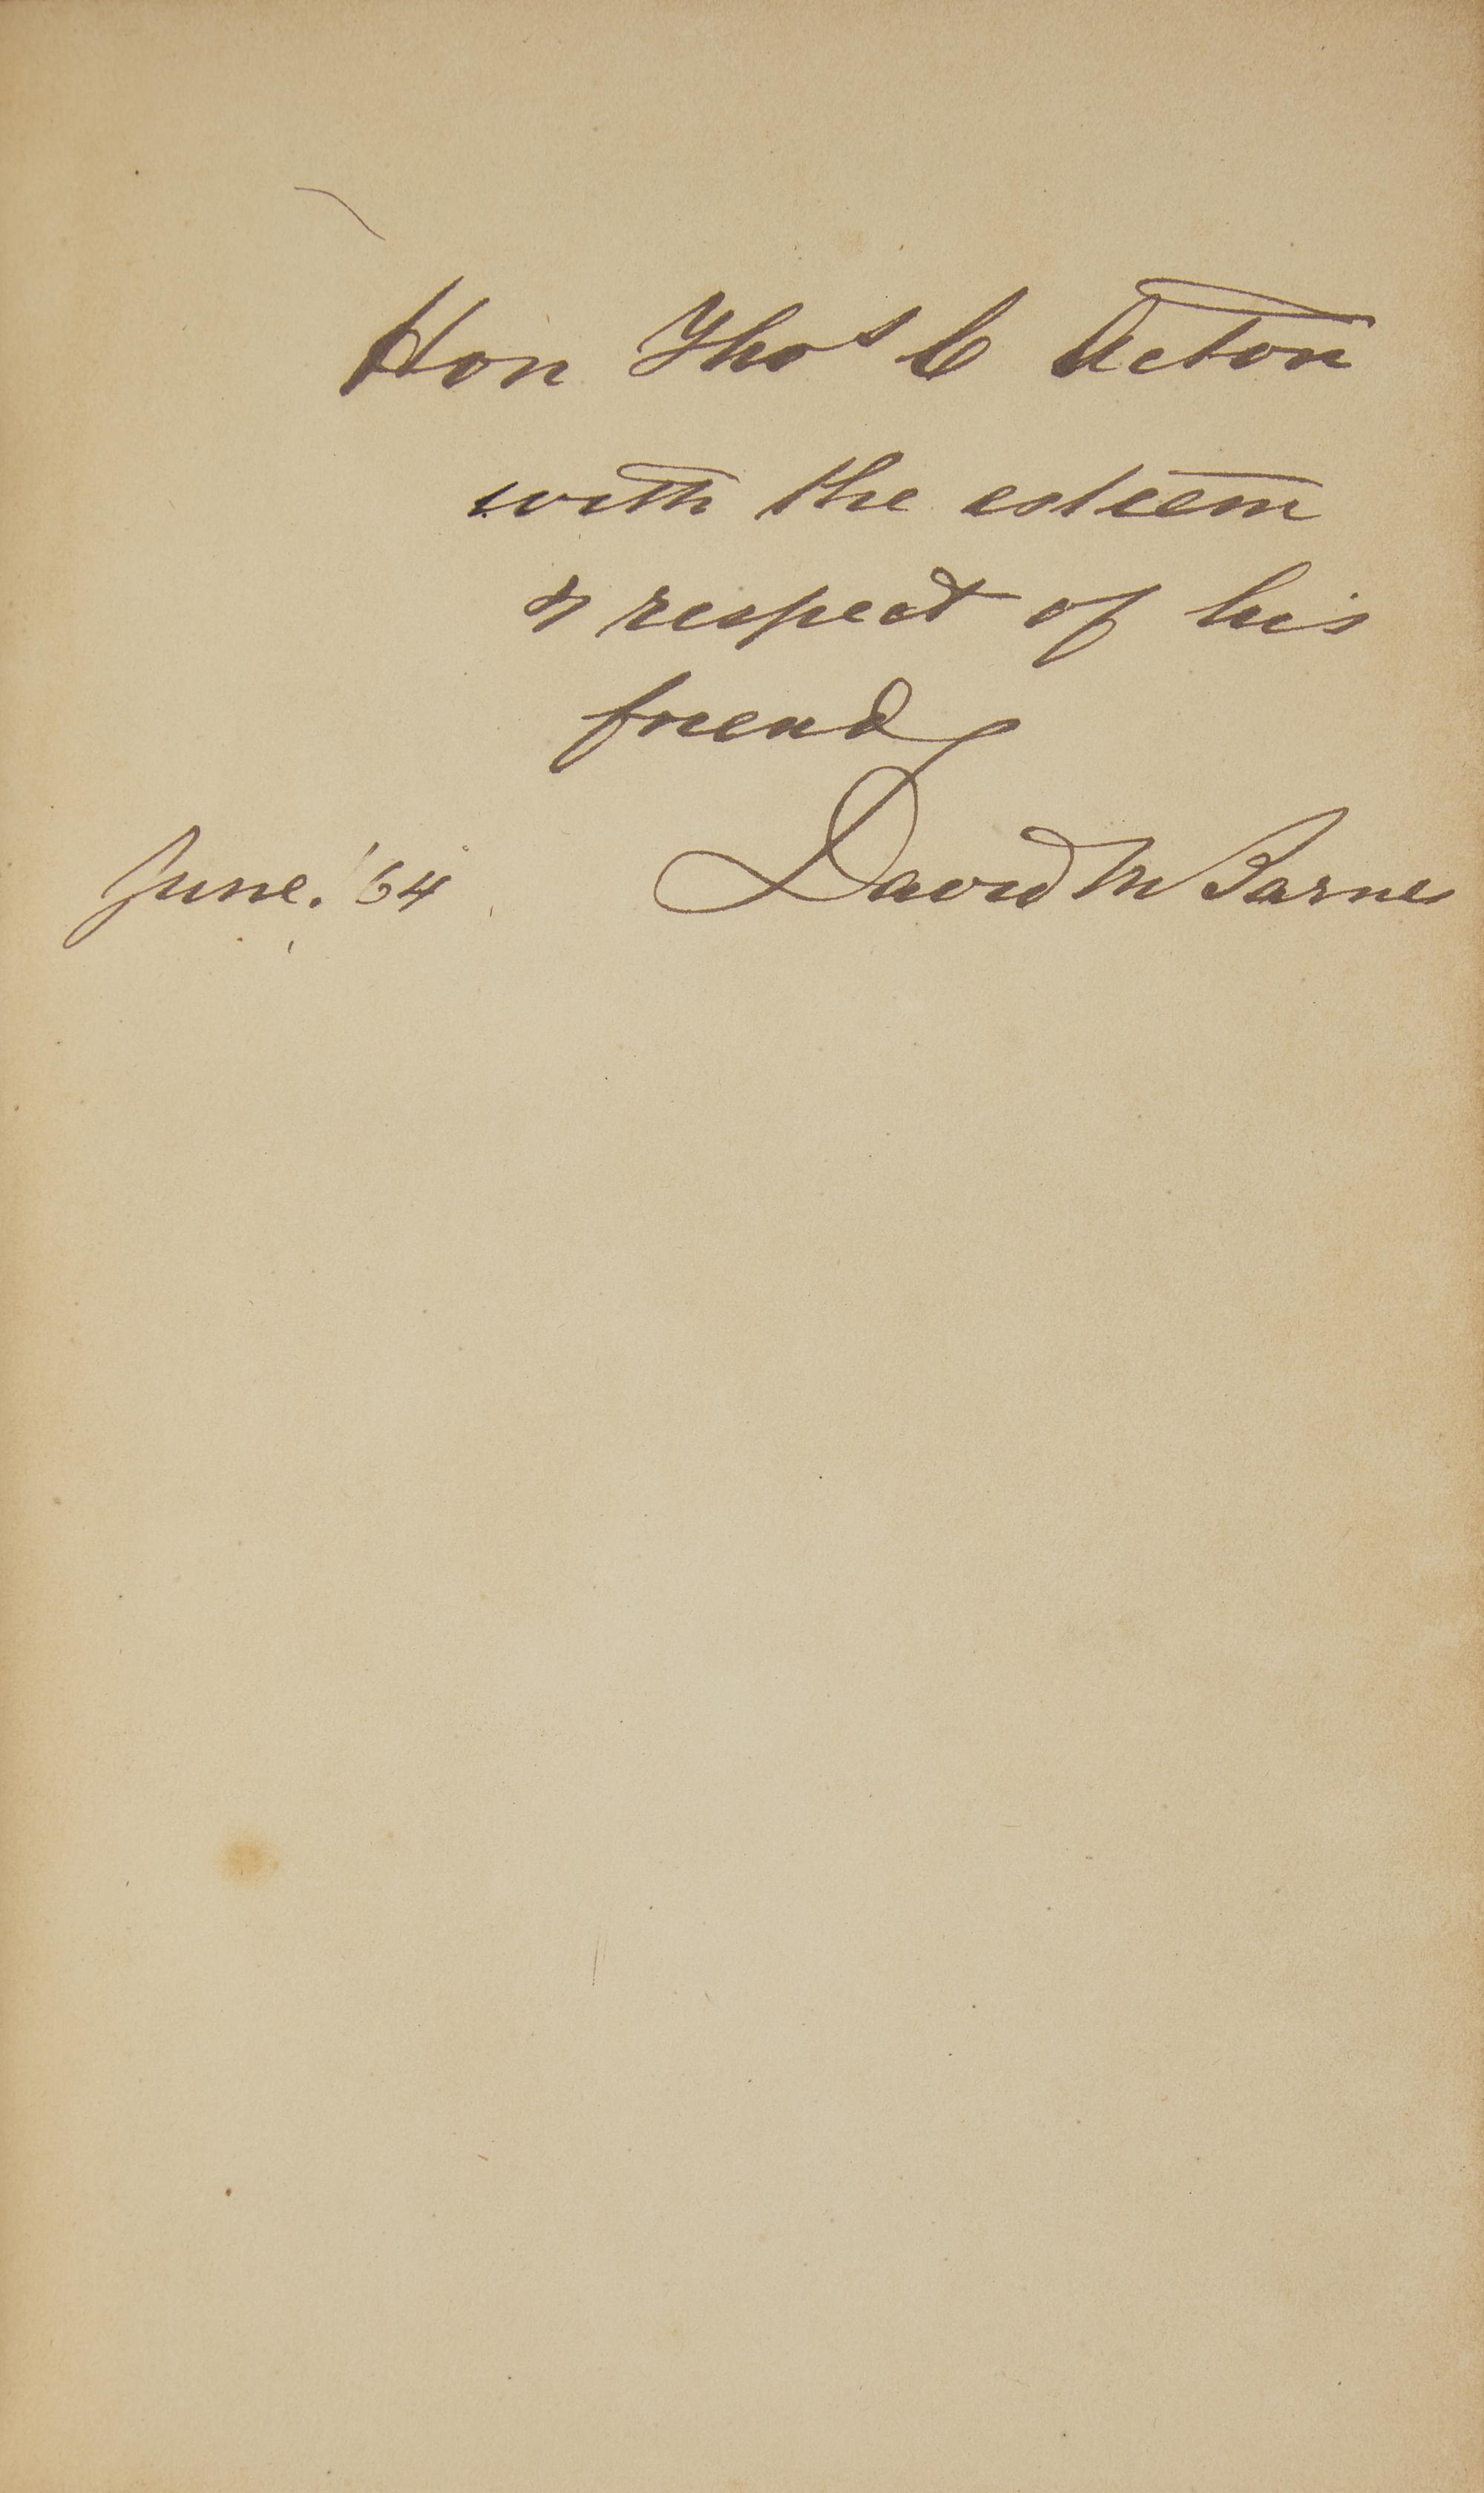 Hon Thos C Acton
with the esteem
& respect of his
friend
David M Barnes
June. '64